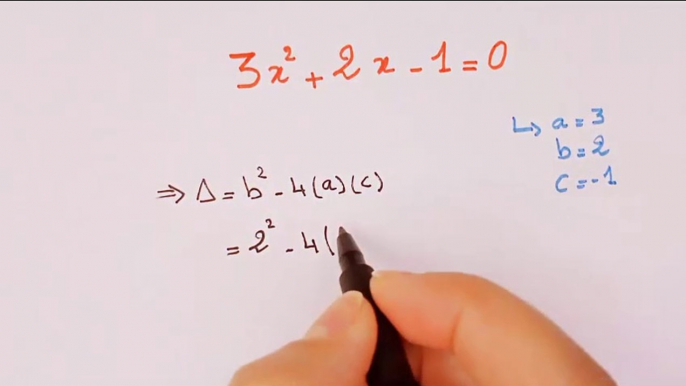 3x² + 2x - 1 = 0
↳ a = 3
b = 2
c = -1
⇒ Δ = b² - 4(a)(c)
= 2² - 4(